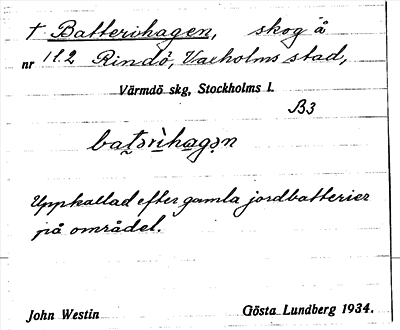 † Batterihagen, skog å
nr 1 l. 2 Rindö, Vaxholms stad,
Värmdö skg, Stockholms l.
B3
bat̬ərìhagən
Uppkallad efter gamla jordbatterier
på området.
John Westin Gösta Lundberg 1934.